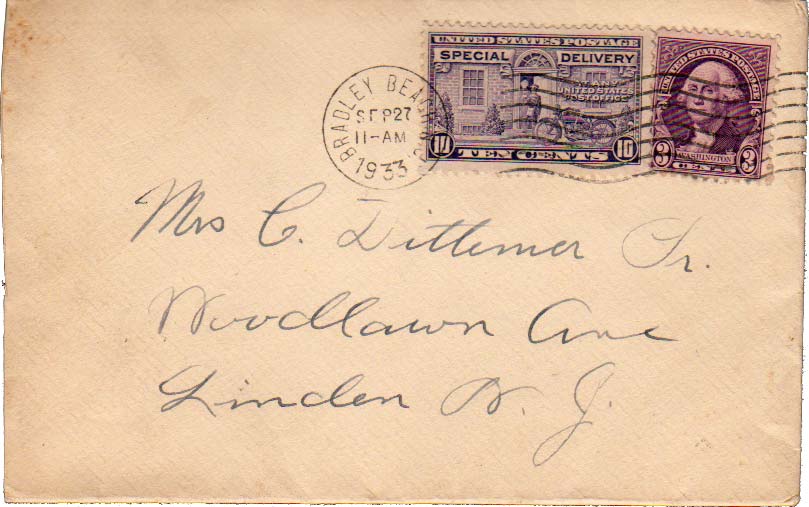 UNITED STATES POSTAGE
SPECIAL DELIVERY
UNITED STATES
POST OFFICE
10 TEN CENTS 10
UNITED STATES POSTAGE
3 WASHINGTON 3
CENTS
BRADLEY BEACH
SEP 27
11-AM
1933
Mrs C. Dittemer Sr.
Woodlawn Ave
Linden N. J.